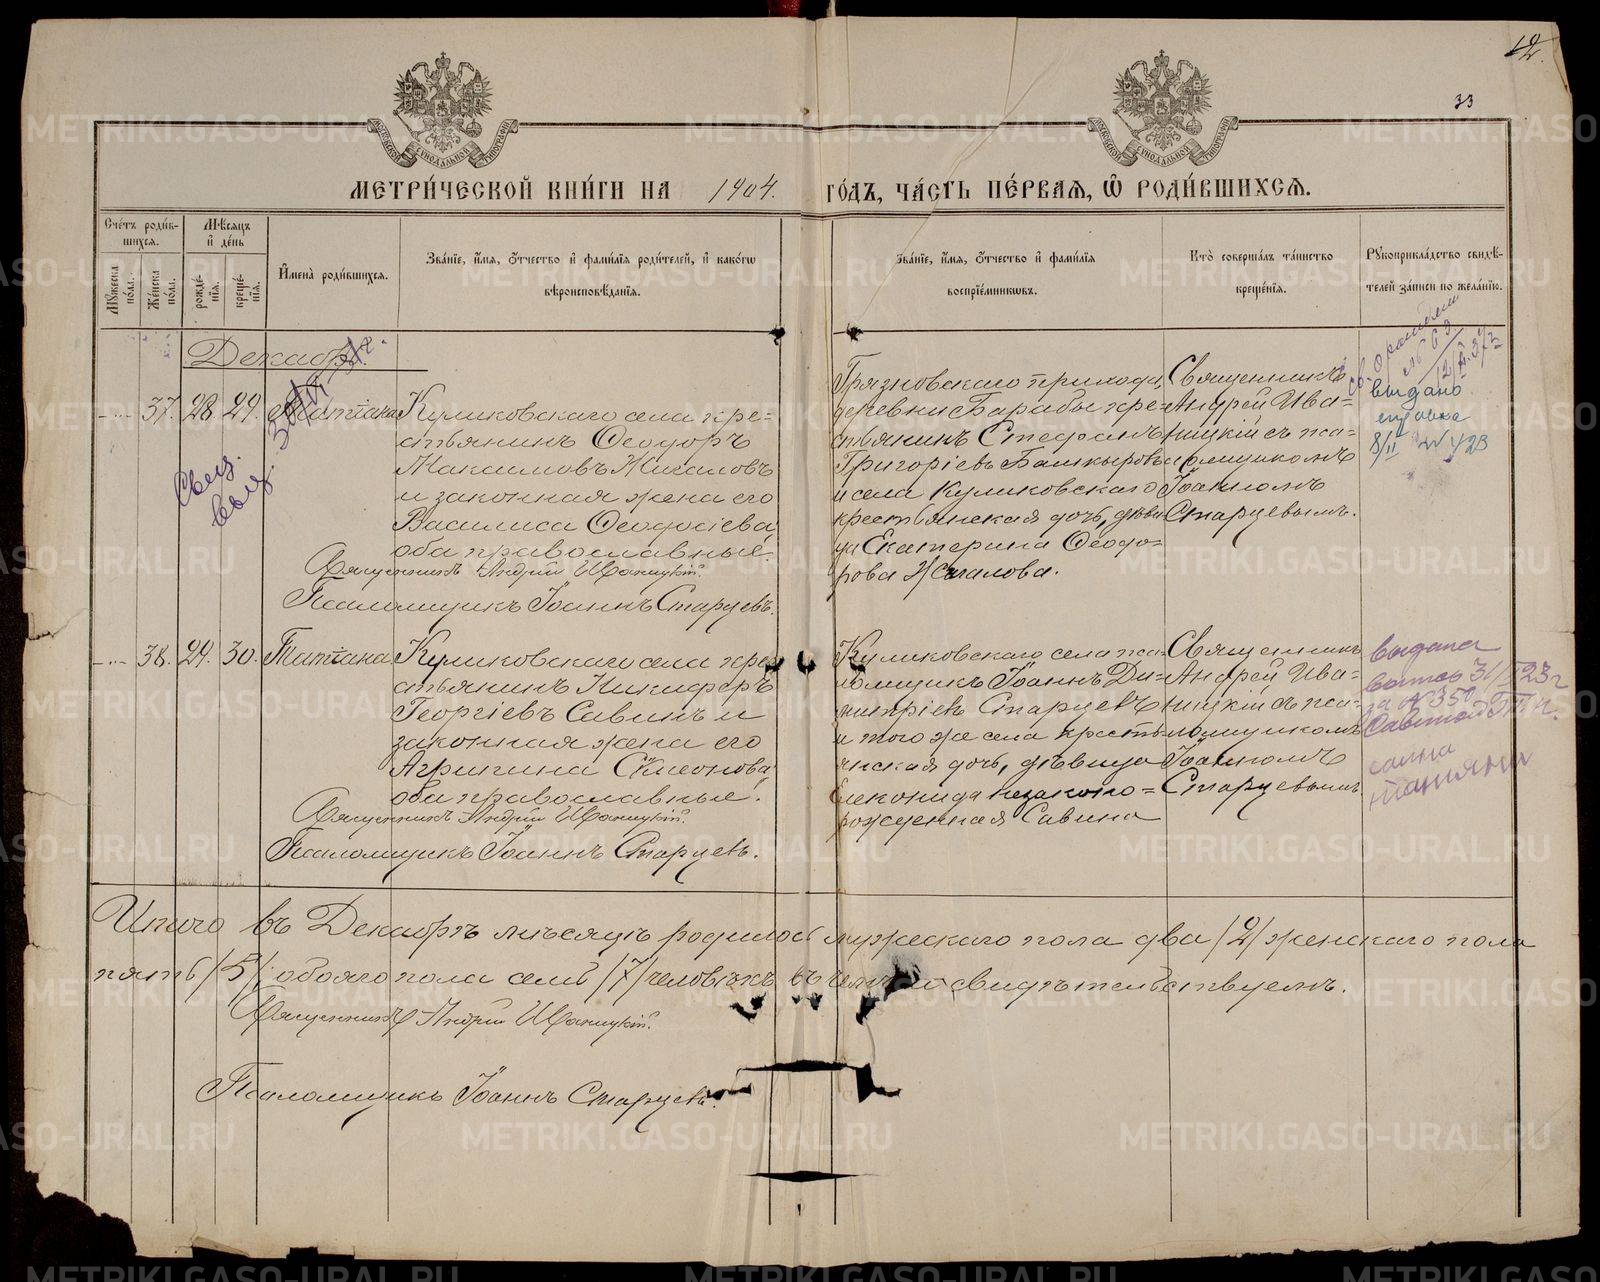 12.
33
МОСКОВСКОЙ СѴНОДАЛЬНОЙ ТИПОГРАФІИ
МОСКОВСКОЙ СѴНОДАЛЬНОЙ ТИПОГРАФІИ
МЕТРИ́ЧЕСКОЙ КНИ́ГИ НА 1904. ГО́ДЪ, ЧА́СТЬ ПЕ́РВАЯ, Ѽ РОДИ́ВШИХСЯ.
Сче́тъ роди́в-
шихся.
Мѣ́сяцъ
и҆ де́нь
Мꙋ́жеска
по́ла.
Же́нска
по́ла.
рожде́-
нїя.
креще́-
нїя.
И҆мена̀ роди́вшихся.
Зва́нїе, и҆́мя, ѻ҆́тчество и҆ фами́лїя роди́телей, и҆ како́гѡ
вѣроисповѣ́данїя.
Зва́нїе, и҆́мя, ѻ҆́тчество и҆ фами́лїя
воспрїе́мникѡвъ.
Кто̀ соверша́лъ та́инство
креще́нїя.
Рꙋкоприкла́дство свидѣ́-
телей за́писи по жела́нїю.
Декабрь.
37. 28. 29. Татіана
Куликовскаго села кре=
стьянинъ Ѳеодоръ
Максимовъ Жигаловъ
и законная жена его
Василиса Ѳеодосіева,
оба православные.
Священникъ Андрей Иваницкій.
Псаломщикъ Іоаннъ Старцевъ.
Грязновскаго прихода,
деревни Барабы кре=
стьянинъ Стефанъ
Григоріевъ Башкыровъ
и села Куликовскаго
крестьянская дочь, дѣви
ца Екатерина Ѳеодо=
рова Жигалова.
Священникъ
Андрей Ива=
ницкій съ пса=
ломщикомъ
Іоанномъ
Старцевымъ.
выдано
справка
8/II № 423
38. 29. 30. Татіана
Куликовскаго села кре=
стьянинъ Никифоръ
Георгіевъ Савинъ и
законная жена его
Агрипина Симонова,
оба православные.
Священникъ Андрей Иваницкій.
Псаломщикъ Іоаннъ Старцевъ.
Куликовскаго села пса=
ломщикъ Іоаннъ Ди=
митріевъ Старцевъ
и того же села кресть=
янская дочь, дѣвица
Елеконида незаконно=
рожденная Савина
Священникъ
Андрей Ива=
ницкій съ пса=
ломщикомъ
Іоанномъ
Старцевымъ
выдана
за № 350
Савиной
Итого въ Декабрѣ мѣсяцѣ родилось мужескаго пола два /2/ женскаго пола
пять /5/, обоего пола семь /7/ человѣкъ, въ чемъ и свидѣтельствуемъ.
Священникъ Андрей Иваницкій.
Псаломщикъ Іоаннъ Старцевъ.
METRIKI.GASO-URAL.RU